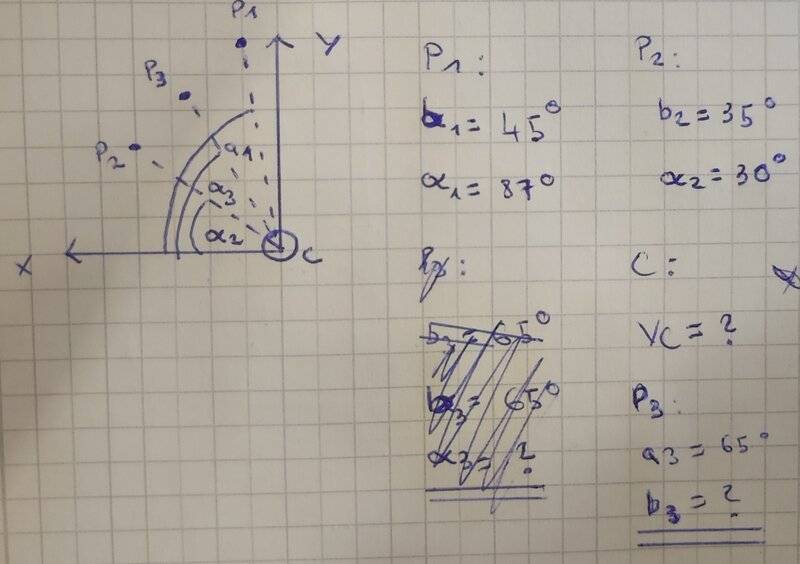 P1
Y
P3
P2
a1
α3
α2
X
C
P1:
b1 = 45°
α1 = 87°
P2:
b2 = 35°
α2 = 30°
C:
YC = ?
b3 = 65°
α3 = ?
P3:
a3 = 65°
b3 = ?